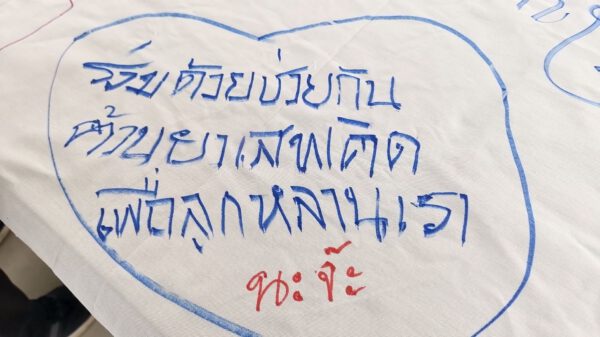 ร่วมด้วยช่วยกัน
ต้านยาเสพติด
เพื่อลูกหลานเรา
นะจ๊ะ